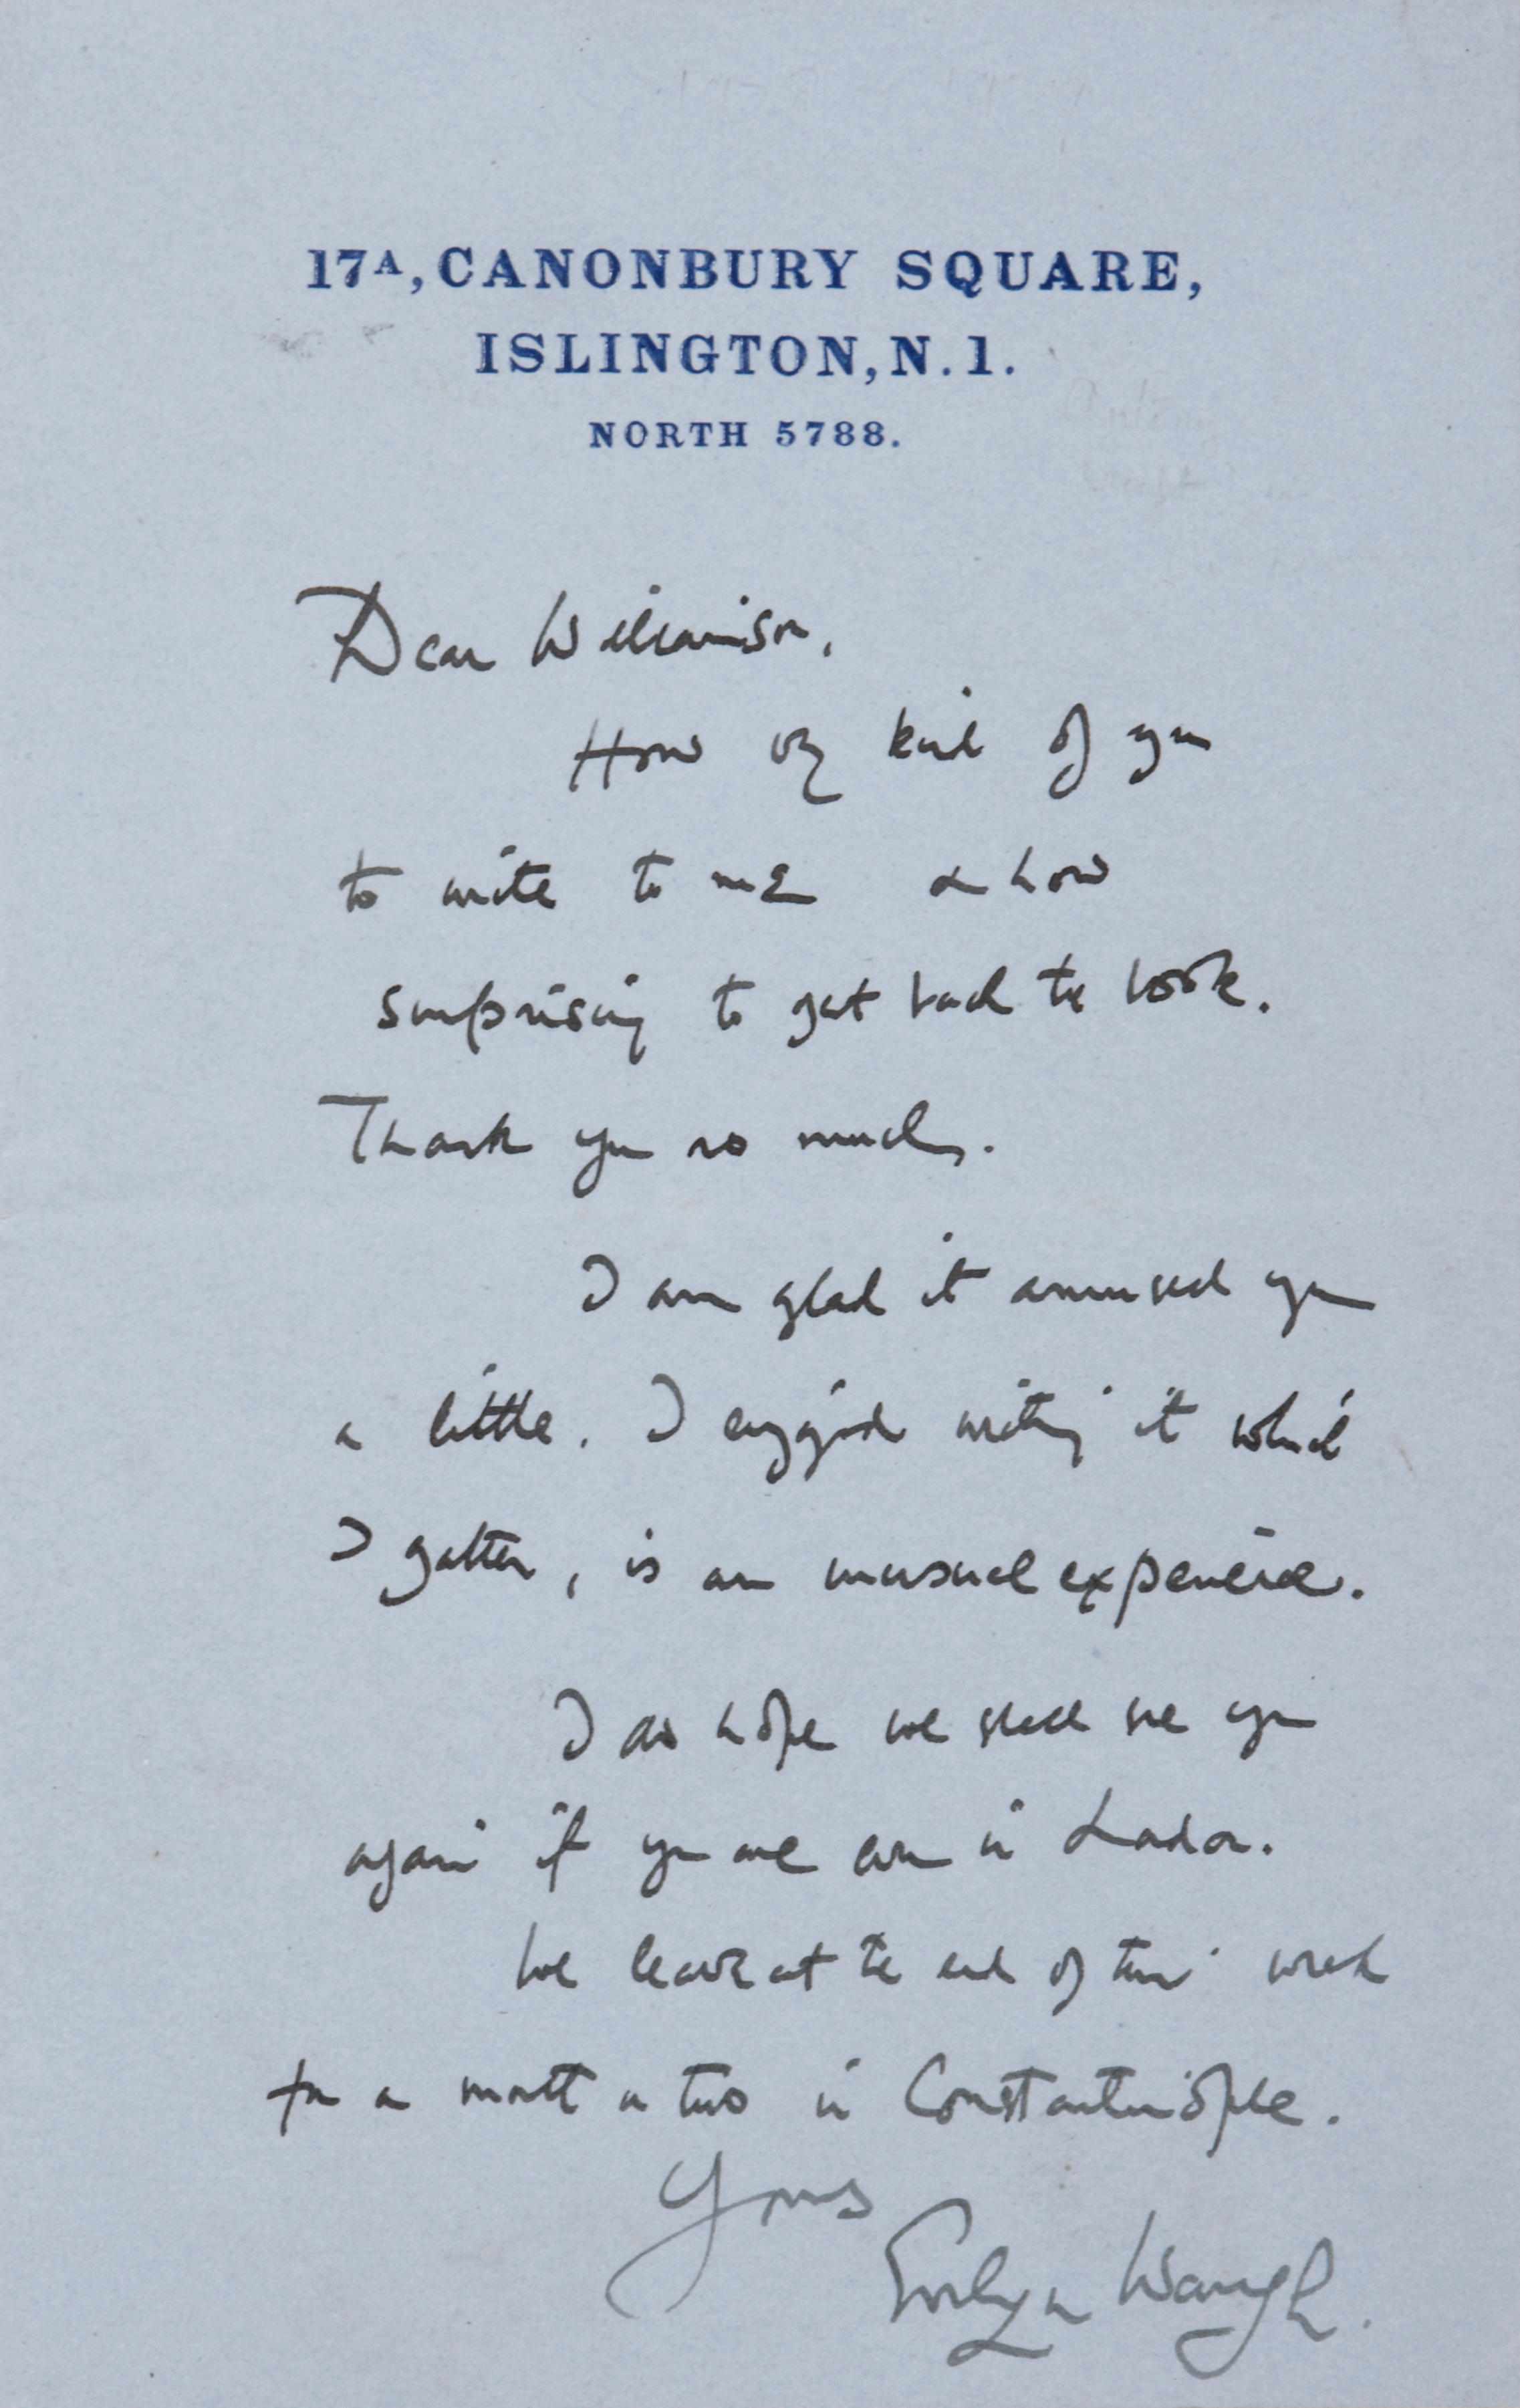 17A, CANONBURY SQUARE,
ISLINGTON, N. 1.
NORTH 5788.
Dear Williamson,
How very kind of you
to write to me & how
surprising to get back the book.
Thank you so much.
I am glad it amused you
a little. I enjoyed writing it which
I gather, is an unusual experience.
I do hope we shall see you
again if you are ever in London.
We leave at the end of this week
for a month or two in Constantinople.
Yours
Evelyn Waugh.